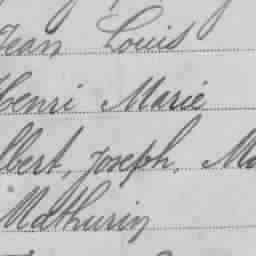 Jean Louis
Henri Marie
lbert, Joseph, Ma
Mathurin